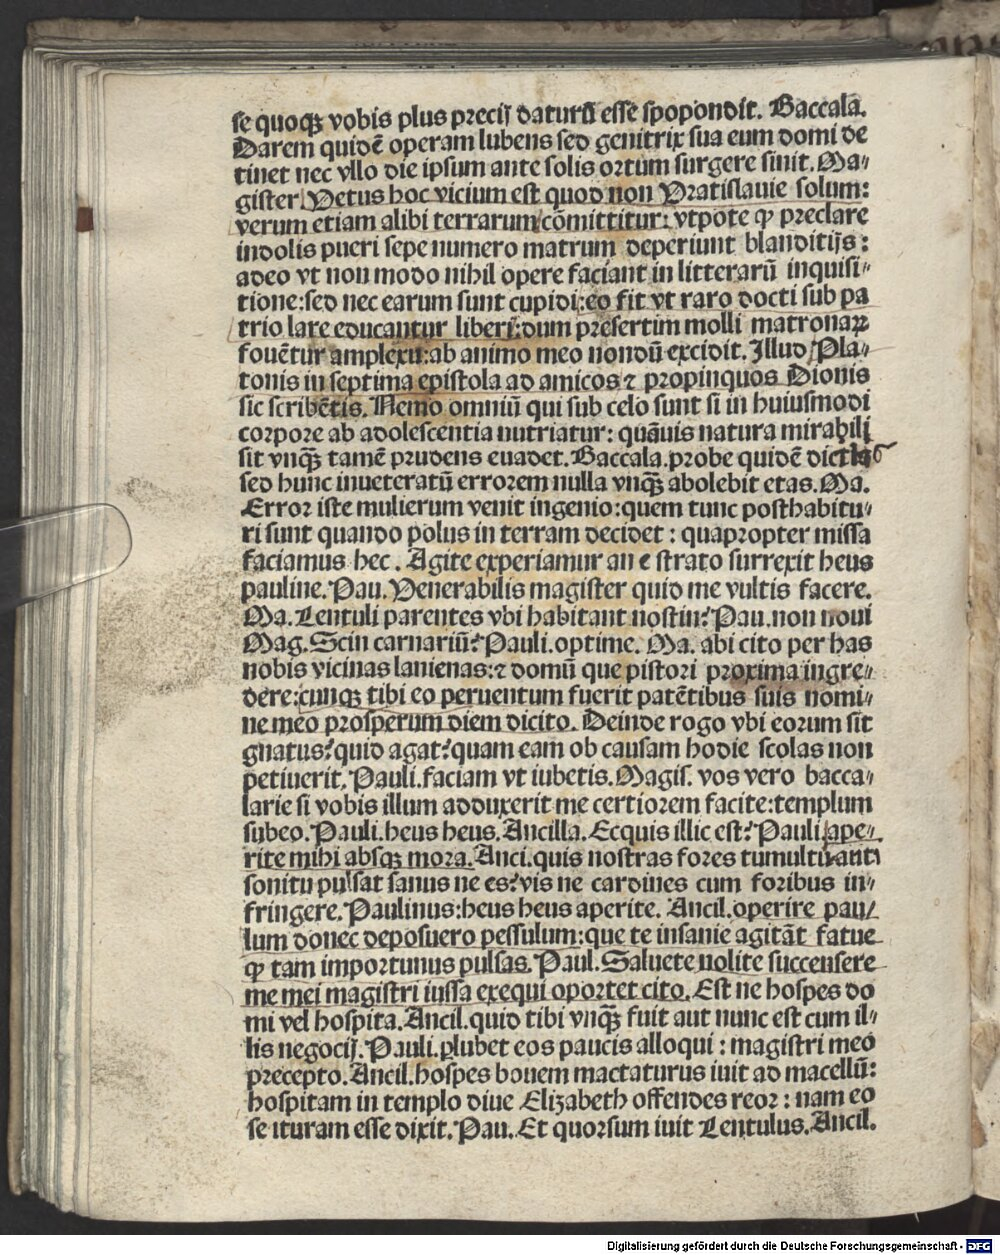 se quoqꝫ vobis plus precij daturũ esse spopondit. Baccala.
Darem quidẽ operam lubens sed genitrix sua eum domi de
tinet nec vllo die ipsum ante solis ortum surgere sinit. Ma⸗
gister. Vetus hoc vicium est quod non Vratislauie solum:
verum etiam alibi terrarum cõmittitur: vtpote ꝙ preclare
indolis pueri sepe numero matrum deperiunt blanditijs:
adeo vt non modo nihil opere faciant in litterarũ inquisi⸗
tione: sed nec earum sunt cupidi: eo fit vt raro docti sub pa
trio lare educantur liberi: dum presertim molli matronaꝝ
fouẽtur amplexu: ab animo meo nondũ excidit. Illud Pla⸗
tonis in septima epistola ad amicos ⁊ propinquos Dionis
sic scribẽtis. Nemo omniũ qui sub celo sunt si in huiusmodi
corpore ab adolescentia nutriatur: quãuis natura mirabili
sit vnqꝫ tamẽ prudens euadet. Baccala. probe quidẽ dictis
sed hunc inueteratũ errorem nulla vnqꝫ abolebit etas. Ma.
Error iste mulierum venit ingenio: quem tunc posthabitu⸗
ri sunt quando polus in terram decidet: quapropter missa
faciamus hec. Agite experiamur an e strato surrexit heus
pauline. Pau. Venerabilis magister quid me vultis facere.
Ma. Lentuli parentes vbi habitant nostin? Pau. non noui
Mag. Scin carnariũ? Pauli. optime. Ma. abi cito per has
nobis vicinas lanienas: ⁊ domũ que pistori proxima ingre⸗
dere: cunqꝫ tibi eo peruentum fuerit patẽtibus suis nomi⸗
ne meo prosperum diem dicito. Deinde rogo vbi eorum sit
gnatus? quid agat? quam eam ob causam hodie scolas non
petiuerit. Pauli. faciam vt iubetis. Magis. vos vero bacca⸗
larie si vobis illum adduxerit me certiorem facite: templum
subeo. Pauli. heus heus. Ancilla. Ecquis illic est? Pauli. ape⸗
rite mihi absqꝫ mora. Anci. quis nostras fores tumultuanti
sonitu pulsat sanus ne es? vis ne cardines cum foribus in⸗
fringere. Paulinus: heus heus aperite. Ancil. operire pau⸗
lum donec deposuero pessulum: que te insanie agitãt fatue
ꝙ tam importunus pulsas. Paul. Saluete nolite succensere
me mei magistri iussa exequi oportet cito. Est ne hospes do
mi vel hospita. Ancil. quid tibi vnqꝫ fuit aut nunc est cum il⸗
lis negocij. Pauli. ꝑlubet eos paucis alloqui: magistri meo
precepto. Ancil. hospes bouem mactaturus iuit ad macellũ:
hospitam in templo diue Elizabeth offendes reor: nam eo
se ituram esse dixit. Pau. Et quorsum iuit Lentulus. Ancil.
Digitalisierung gefördert durch die Deutsche Forschungsgemeinschaft - DFG